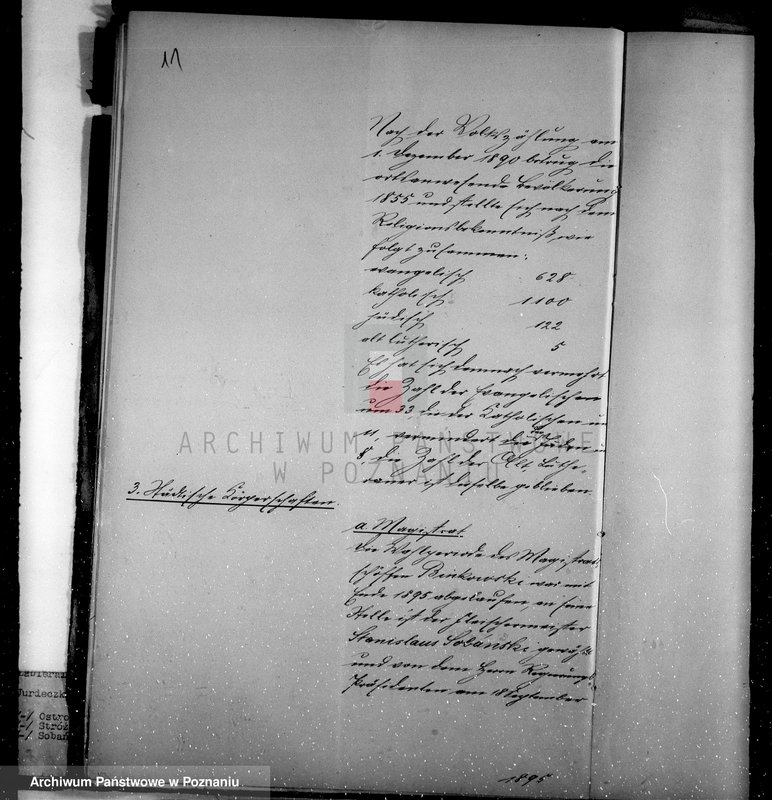 11
Nach der Volkszählung am
1. Dezember 1890 betrug die
ortsanwesende Bevölkerung
1855 und stellte sich nach dem
Religionsbekenntniß wie
folgt zusammen:
evangelisch 628
katholisch 1100
jüdisch 122
alt lutherisch 5
Es hat sich demnach vermehrt
die Zahl der Evangelischen
um 33 die der Katholischen um
11, vermindert die Juden um
8 die Zahl der Alt Luthe-
raner ist dieselbe geblieben.
3. Städtische Körperschaften.
a. Magistrat.
Die Wahlperiode des Magistrats
schöffen Binkowski war mit
Ende 1895 abgelaufen, an seine
Stelle ist der Fleischermeister
Stanislaus Sobański gewählt
und von dem Herrn Regierungs
Präsidenten am 18 September
1895
ARCHIWUM PAŃSTWOWE
W POZNANIU
Jurieczk
(-/ Ostro
-/ Stróż
-/ Sobań
Archiwum Państwowe w Poznaniu